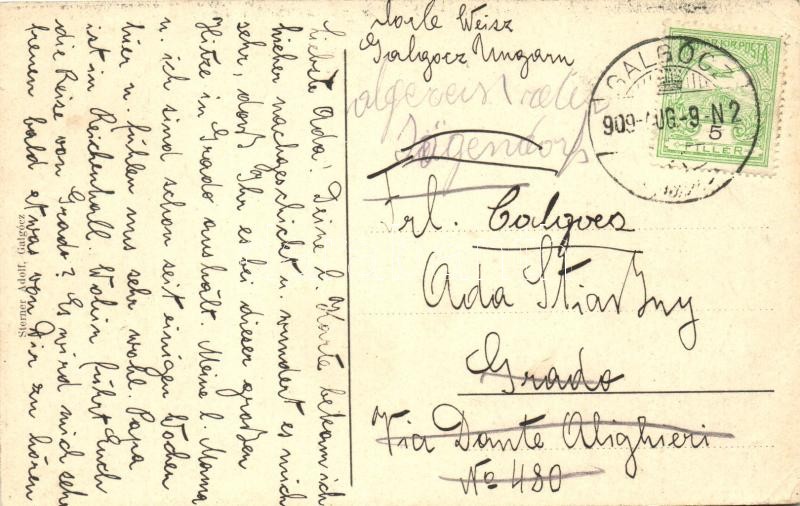 Liebste Ada! Deine l. Karte bekam ich
hieher nachgeschickt u. wundert es mich
sehr, daß Ihr es bei dieser großen
Hitze in Grado aushält. Meine l. Mama
u. ich sind schon seit einigen Wochen
hier u. fühlen uns sehr wohl. Papa
ist in Reichenhall. Wohin führt Euch
die Reise von Grado? Es wird mich sehr
freuen bald etwas von Dir zu hören
Sterner Adolf, Galgócz
Weisz
Galgocz Ungarn
Jägendorf
GALGÓC
909 AUG. -9 -N2
5
FILLER
Frl.
Ada Stiaßny
Grado
Via Dante Alighieri
No 480